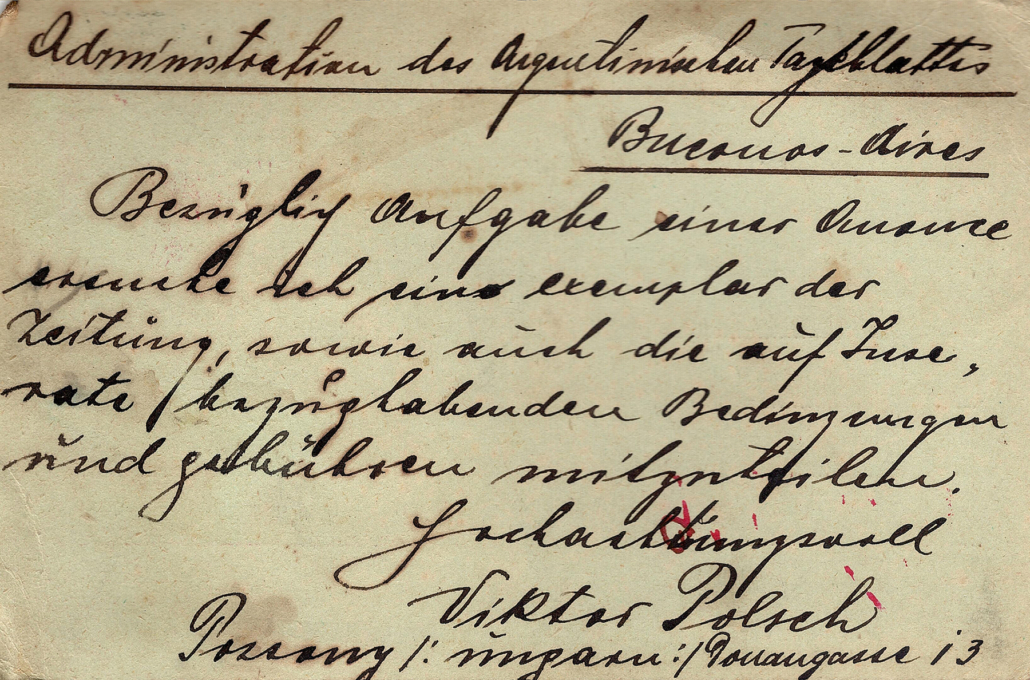 Administration des Argentinischen Tageblattes
Buenos-Aires
Bezüglich Aufgabe einer Anonce
ersuche ich eine exemplar der
Zeitung, sowie auch die auf Inse,
rate bezughabenden Bedingungen
und gebühren mitzuteilen.
Hochachtungsvoll
Viktor Polsch
Pozsony /: ungarn :/ Donaugasse 13